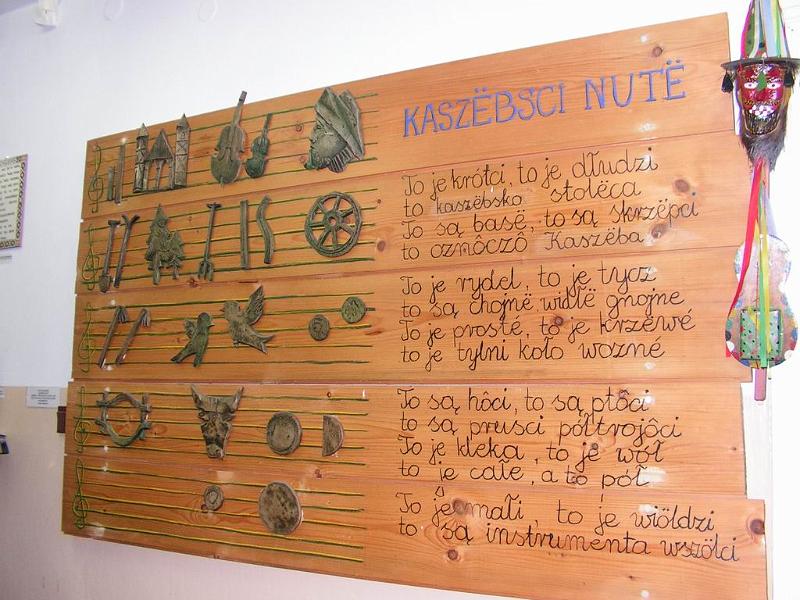 KASZËBSCI NUTË
To je krótci, to je dłudzi
to kaszëbskô stolëca
To są basë, to są skrzëpci
to oznôczô Kaszëba
To je rydel, to je tycz
to są chojnë widłë gnojne
To je prosté, to je krzëwé
to je tylni koło wozné
To są hôci, to są ptôci
to są prusci półtrojôci
To je kleka, to je wół
to je całé, a to pół
To je małi, to je wiôldzi
to są instrumenta wszôlci